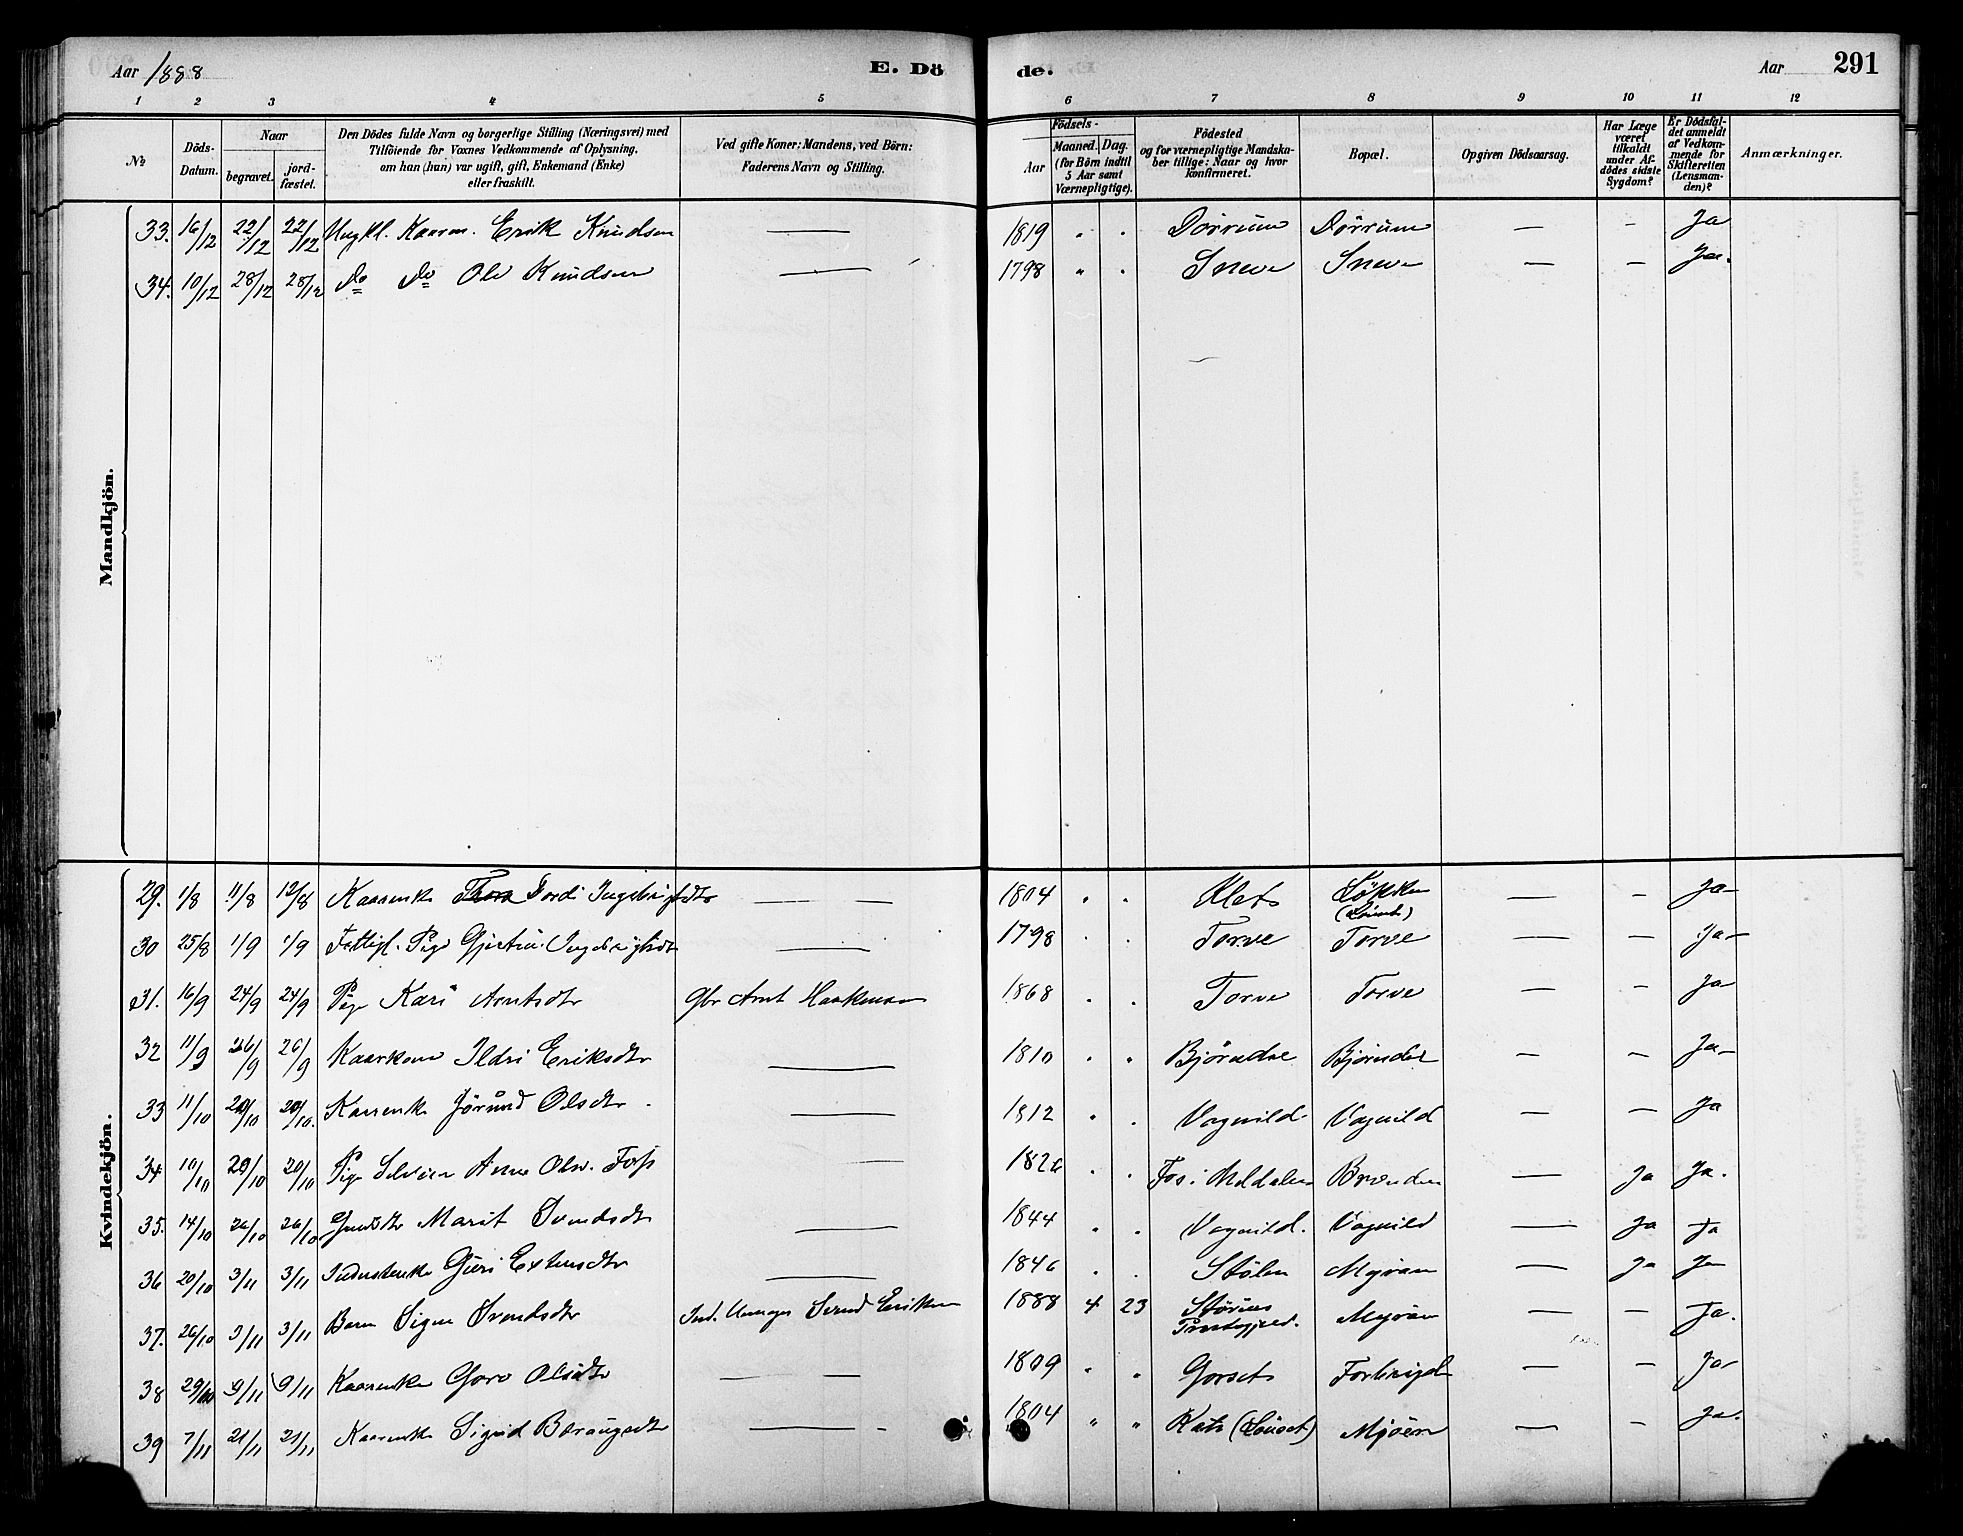 Aar 1888 E. Dö de. Aar 291
1 2 3 4 5 6 7 8 9 10 11 12
No
Döds-Datum.
Naar
begravet.
jord-fæstet.
Den Dödes fulde Navn og borgerlige Stilling (Næringsvei) med
Tilföiende for Voxnes Vedkommende af Oplysning,
om han (hun) var ugift, gift, Enkemand (Enke)
eller fraskilt.
Ved gifte Koner: Mandens, ved Börn:
Faderens Navn og Stilling.
Födsels-
Aar
Maaned. Dag.
(for Börn indtil
5 Aar samt
Værnepligtige).
Födested
og for værnepligtige Mandska-
ber tillige: Naar og hvor
konfirmeret.
Bopæl.
Opgiven Dödsaarsag.
Har Læge
været
tilkaldt
under Af-
dödes sidste
Sygdom?
Er Dödsfal-
det anmeldt
af Vedkom-
mende for
Skifteretten
(Lensman-
den)?
Anmærkninger.
Mandkjön.
33. 16/12 22/12 22/12 Ungkl. Kaarm. Erik Knudsen — 1819 " " Dörrum Dörrum — – Ja
34. 10/12 28/12 28/12 do do Ole Knudsen — 1798 " " Sneve Sneve — – Ja.
Kvindekjön.
29. 1/8 11/8 12/8 Kaarenke Thora Dordi Ingebrigtsdtr — — 1804 " " Klets Lökken — – Ja
30 25/8 1/9 1/9 Fattigl. Pige Ingebrigtsdtr — 1798 " " Torve Torve — – Ja
31. 16/9 24/9 24/9 Pige Kari Arntsdtr Gbr Arnt Haakensen 1868 " " Torve Torve — – Ja
32 11/9 26/9 26/9 Kaarkone Ildri Eriksdtr — 1810 " " Björndal Björndal — – Ja
33 11/10 20/10 20/10. Kaarenke Jörund Olsdtr — 1812 " " Vognild Vognild — – Ja
34 10/10 20/10 20/10 Pige Anne Ols. Foss — 1826 " " Fos i Meldalen Brænden — Ja Ja.
35. 14/10 26/10 26/10 Marit Svendsdtr — 1844 " " Vognild. Vognild — Ja Ja
36 20/10 3/11 3/11 Inderstenke Guri Estensdtr — 1846 " " Stölen Myran — Ja Ja
37. 26/10 3/11 3/11 Barn Signe Svendsdtr Ind. Svend Eriksen 1888 4 23 Stören Præstegjeld. Myran — – Ja.
38 29/10 9/11 9/11 Kaarenke Goro Olsdtr — — 1809 " " Gorset — – Ja
39 7/11 21/11 21/11 Kaarenke Sigrid — – 1804 " " (Lönset) Mjöen — – Ja.